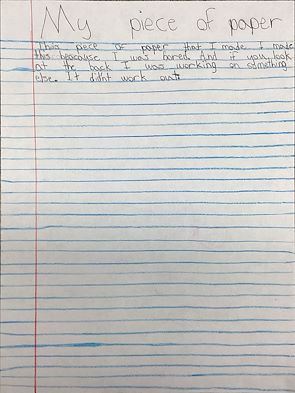 My piece of paper
This piece of paper that I made I made
this beacause I was bored. And if you look
at the back I was working on something
else. It didnt work out.